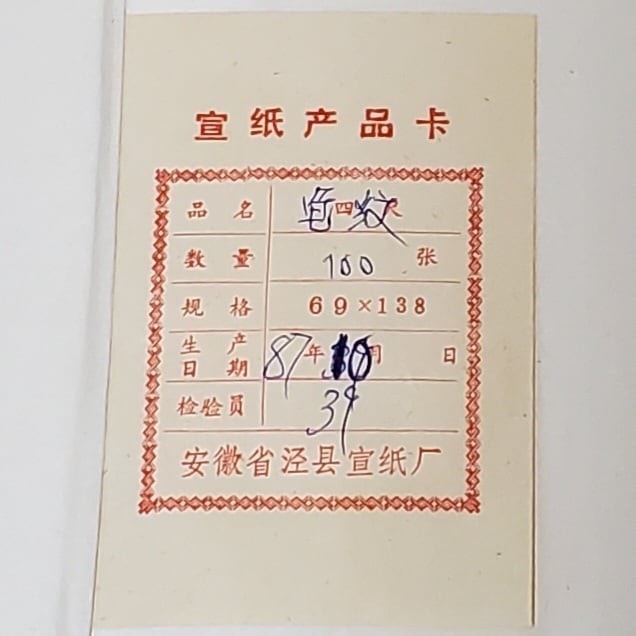 宣纸产品卡
品名 龟纹 四尺
数量 100 张
规格 69×138
生产日期 87年 10月 日
检验员 39
安徽省泾县宣纸厂